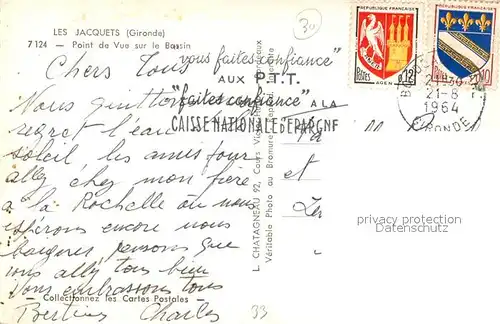 LES JACQUETS (Gironde)
7124 - Point de Vue sur le Bassin
30
RÉPUBLIQUE FRANÇAISE
RÉPUBLIQUE FRANÇAISE
POSTES
0,12
AGEN
21H30
21-8
1964
GIRONDE
"vous faites confiance"
AUX P.T.T.
"faites confiance" A LA
CAISSE NATIONALE D'EPARGNE
Chers Tous
Nous quittons
regret l'eau
soleil les amis pour
ally chez mon frère
a la Rochelle ou nous
espérons encore nous
baigner, pensons que
vous ally tous bien
Vous embrassons tous
Charles
et
L. CHATAGNEAU 92, Cours Victor Hugo, Bordeaux
Véritable Photo au Bromure
Collectionnez les Cartes Postales
33
privacy protection
Datenschutz